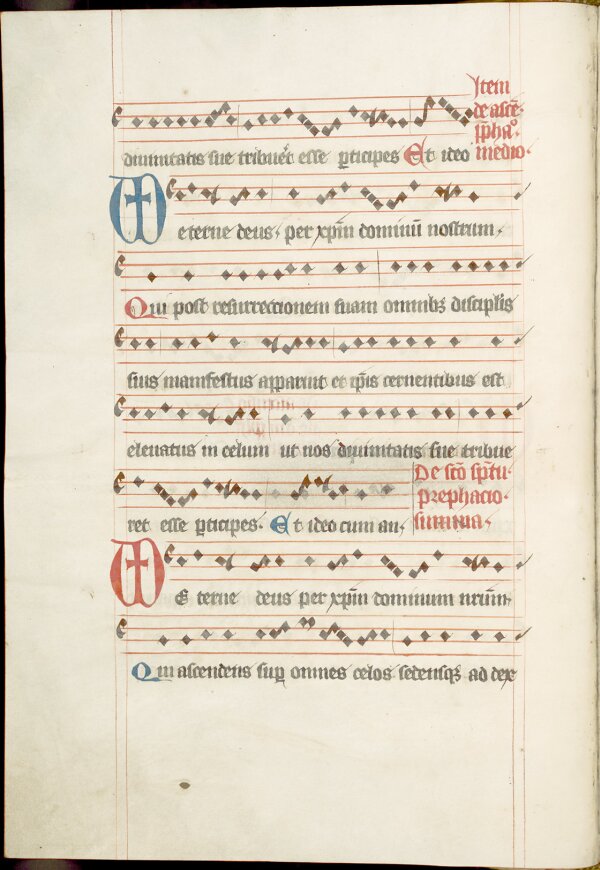 Item
de ascē
p̄pha°.
medio.
diuinitatis sue tribueret esse ꝑticipes Et ideo
eterne deus. per xp̄m dominū nostrum.
Qui post resurrectionem suam omnibꝫ disciplīs
suis manifestus apparuit et ip̄is cernentibus est
eleuatus in celum ut nos diuinitatis sue tribue
ret esse ꝑticipes. Et ideo cum an,
De sc̄o sp̄tu.
prephacio.
summa,
E terne deus per xp̄m dominum nr̄um,
Qui ascendens suꝑ omnes celos sedensqꝫ ad dex